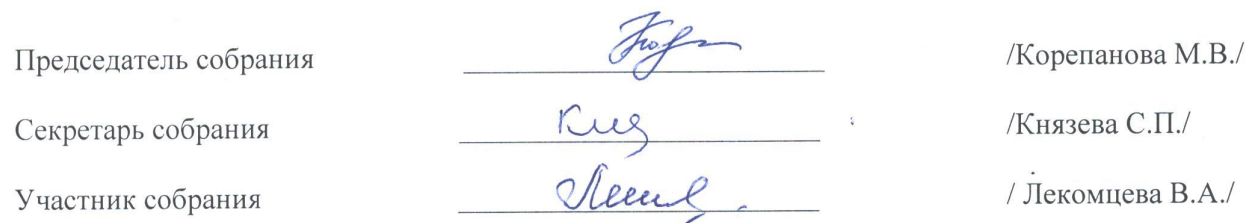 Председатель собрания /Корепанова М.В./
Секретарь собрания /Князева С.П./
Участник собрания / Лекомцева В.А./